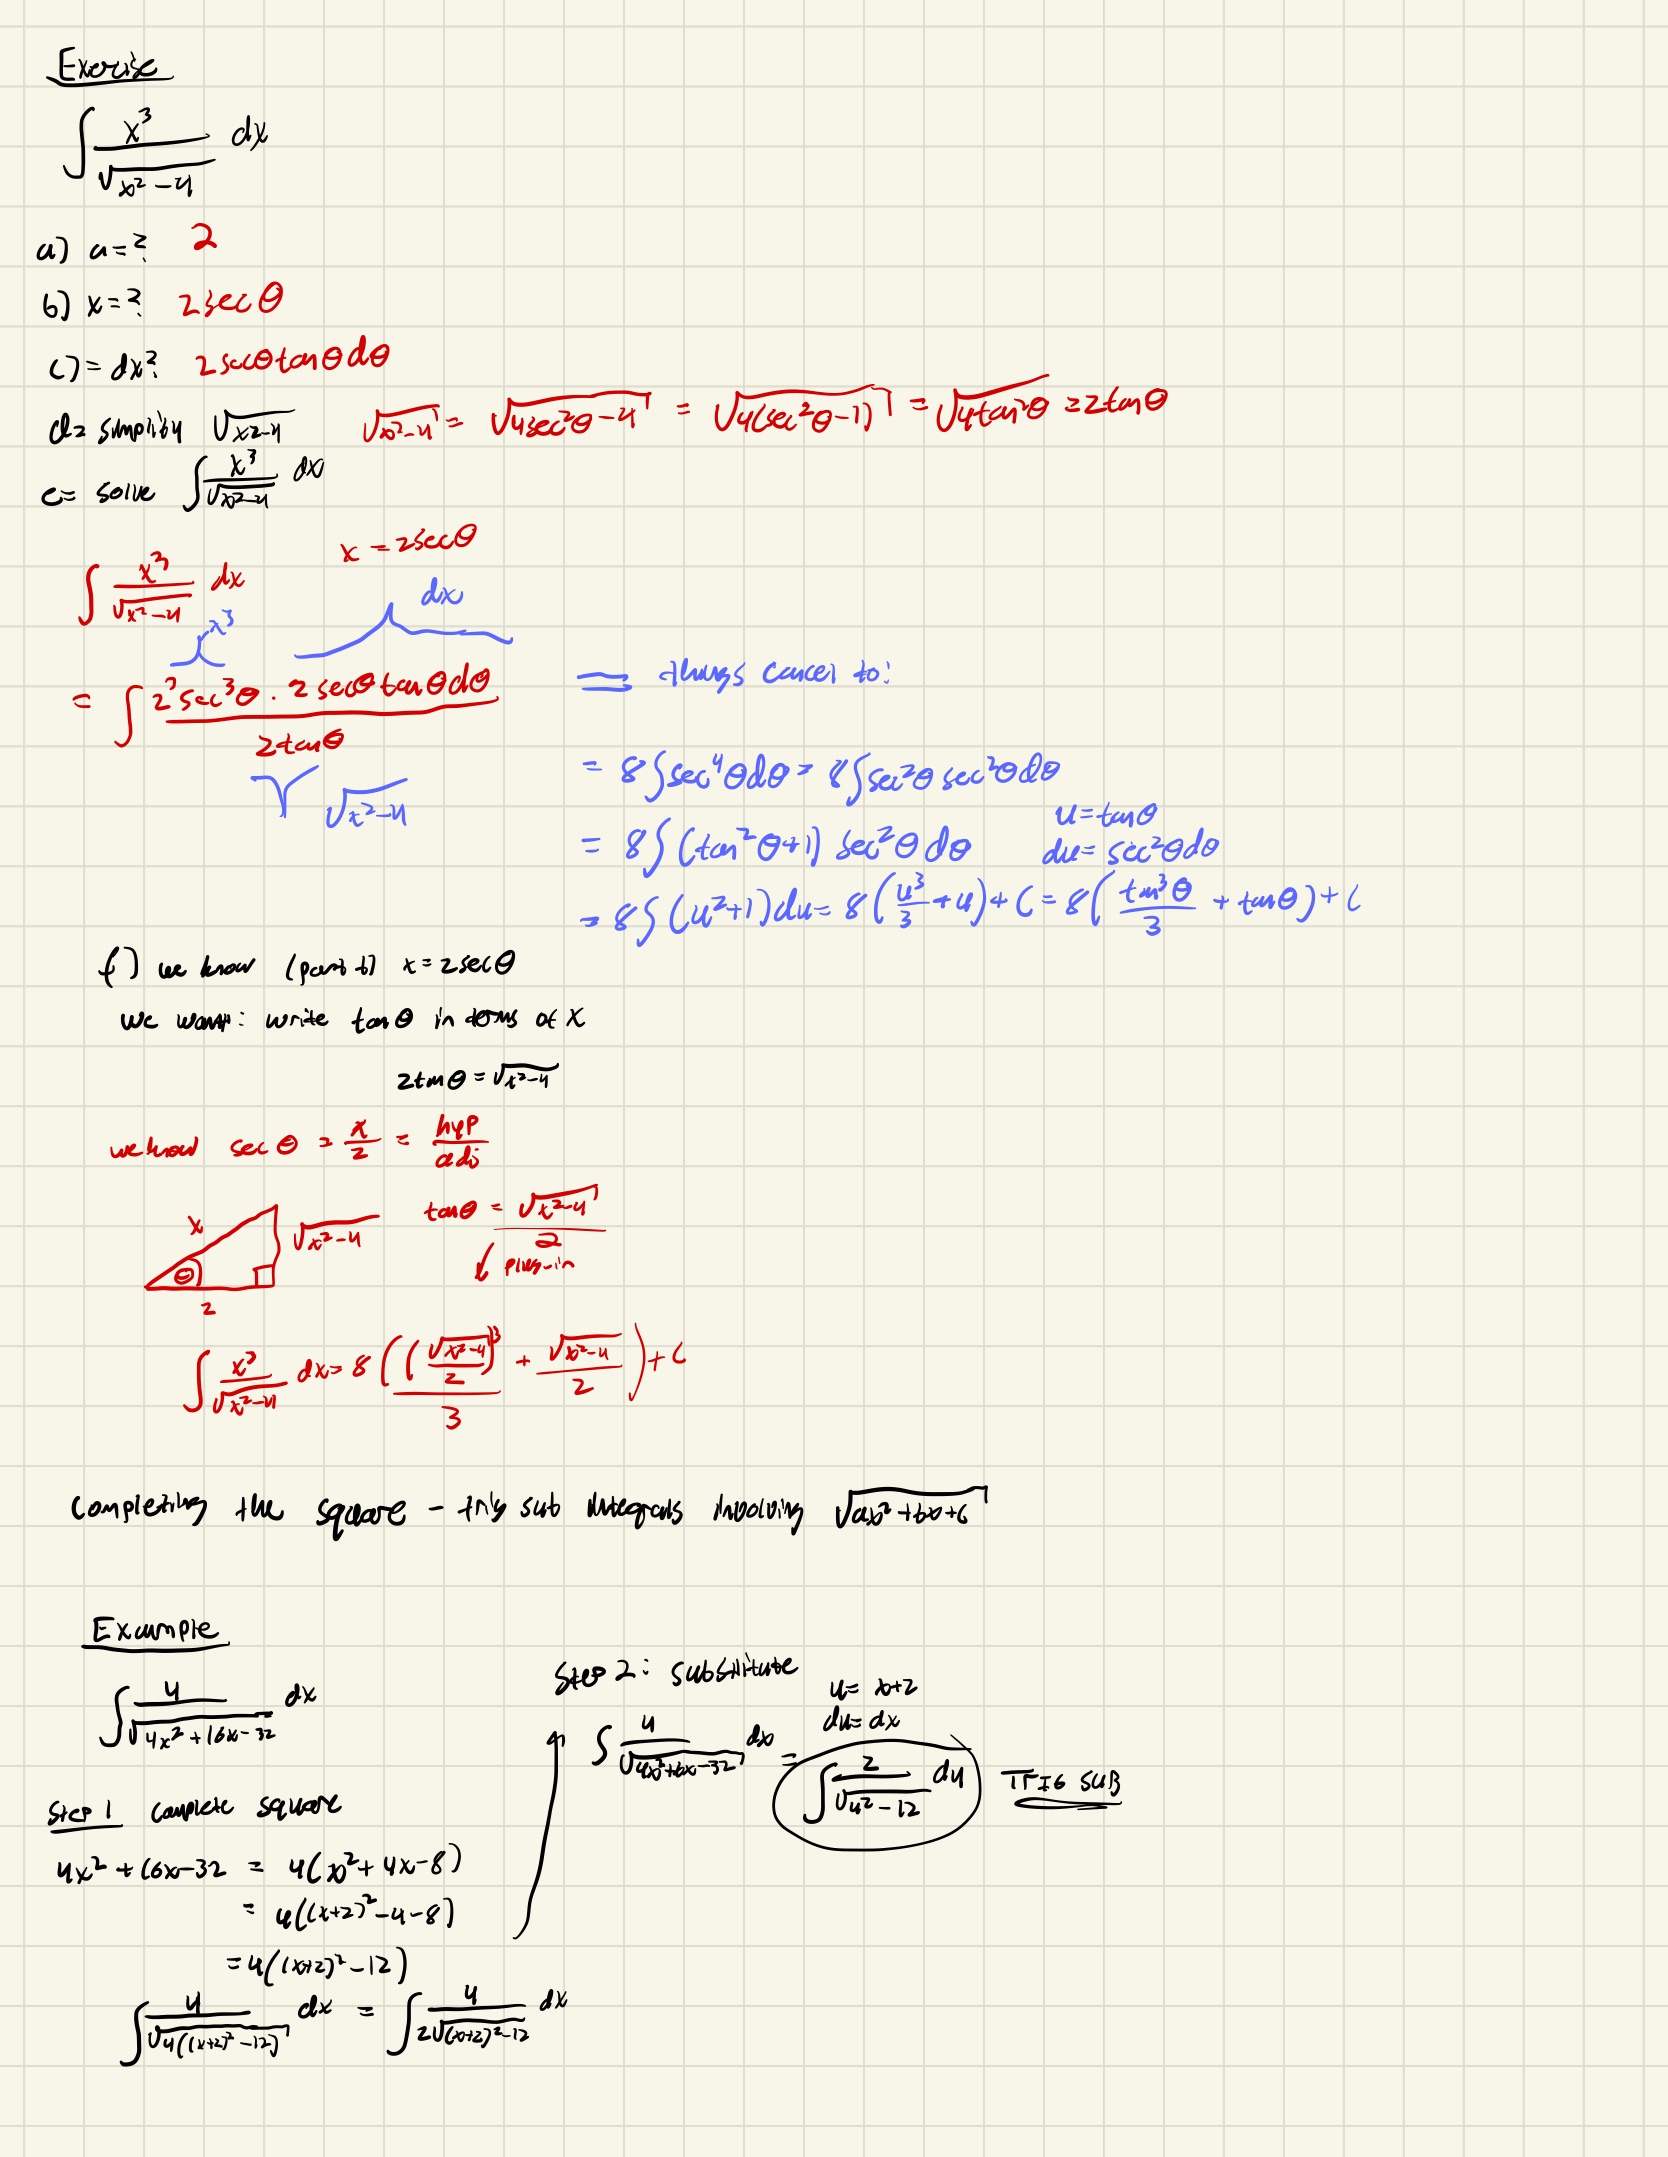 Exercise
∫ x³/√(x²-4) dx
a) a=? 2
b) x=? 2secθ
c) = dx? 2secθtanθdθ
d= simplify √(x2-4) √(x²-4) = √(4sec²θ-4) = √(4(sec²θ-1)) = √(4tan²θ) = 2tanθ
e= solve ∫ x³/√(x²-4) dx
x = 2secθ
∫ x³/√(x²-4) dx
x³ dx
= ∫ (2³sec³θ · 2secθtanθdθ)/(2tanθ) = things cancel to:
√(x²-4)
= 8∫sec⁴θdθ = 8∫sec²θ sec²θdθ
u=tanθ
= 8∫(tan²θ+1) sec²θdθ du= sec²θdθ
= 8∫(u²+1)du = 8(u³/3 + u) + C = 8(tan³θ/3 + tanθ) + C
f) we know (part b) x = 2secθ
we want: write tanθ in terms of x
2tanθ = √(x²-4)
we know secθ = x/2 = hyp/adj
x √(x²-4) tanθ = √(x²-4)/2
θ plug-in
2
∫ x³/√(x²-4) dx = 8((√(x²-4)/2)³/3 + √(x²-4)/2) + C
Completing the square - trig sub integrals involving √(ax²+bx+c)
Example
∫ 4/√(4x²+16x-32) dx
Step 1 complete square
4x²+16x-32 = 4(x²+4x-8)
= 4((x+2)²-4-8)
= 4((x+2)²-12)
∫ 4/√(4((x+2)²-12)) dx = ∫ 4/(2√((x+2)²-12)) dx
Step 2: substitute
u= x+2
du=dx
∫ 4/√(4x²+16x-32) dx = ∫ 2/√(u²-12) du TRIG SUB